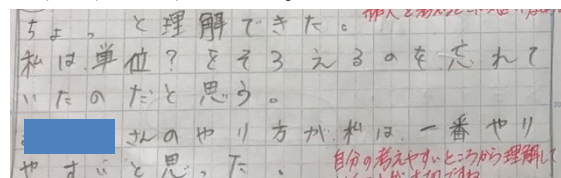 ちょっと理解できた。
私は単位?をそろえるのを忘れて
いたのだと思う。
さんのやり方が私は一番やり
やすいと思った。
自分の考えやすいところから理解して